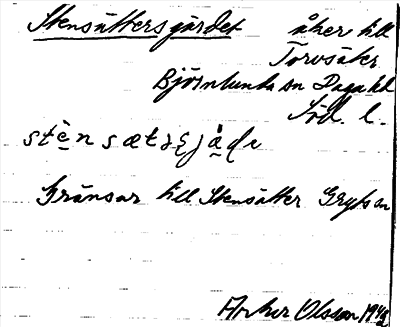 Stensättersgärdet åker till
Torvsäter
Björnlunda sn Daga hd
Söd. l.
stènsætsjàde
Gränsar till Stensätter Gryts sn
Olsson 1942